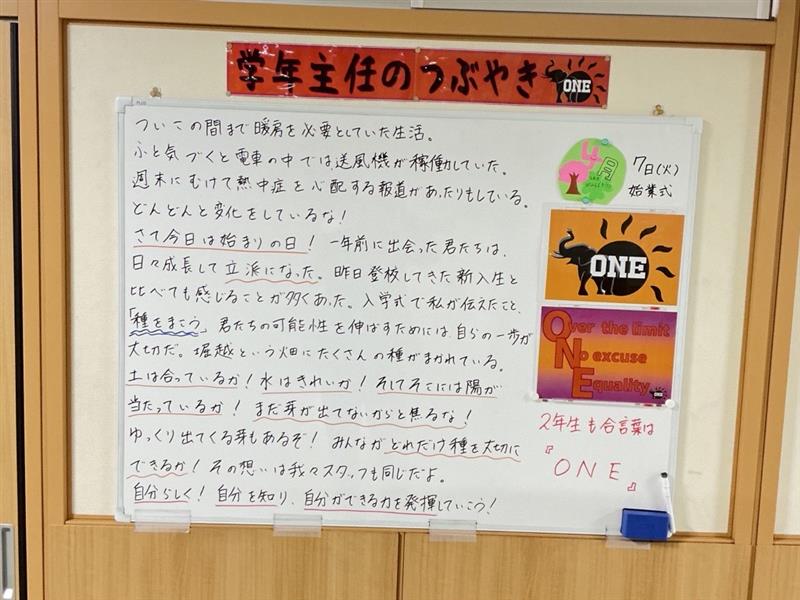 学年主任のつぶやき
ONE
ついこの間まで暖房を必要としていた生活。
ふと気づくと電車の中では送風機が稼働していた。
週末にむけて熱中症を心配する報道があったりもしている。
どんどんと変化をしているな!
さて今日は始まりの日! 一年前に出会った君たちは、
日々成長して立派になった。昨日登校してきた新入生と
比べても感じることが多くあった。入学式で私が伝えたこと、
「種をまこう」君たちの可能性を伸ばすためには、自らの一歩が
大切だ。堀越という畑にたくさんの種がまかれている。
土は合っているか! 水はきれいか! そしてそこには陽が
当たっているか! まだ芽が出てないからと焦るな!
ゆっくり出てくる芽もあるぞ! みんながどれだけ種を大切に
できるか! その想いは我々スタッフも同じだよ。
自分らしく! 自分を知り、自分ができる力を発揮していこう!
4月
7日(火)
始業式
ONE
Over the limit
No excuse
Equality
2年生も合言葉は
『ONE』